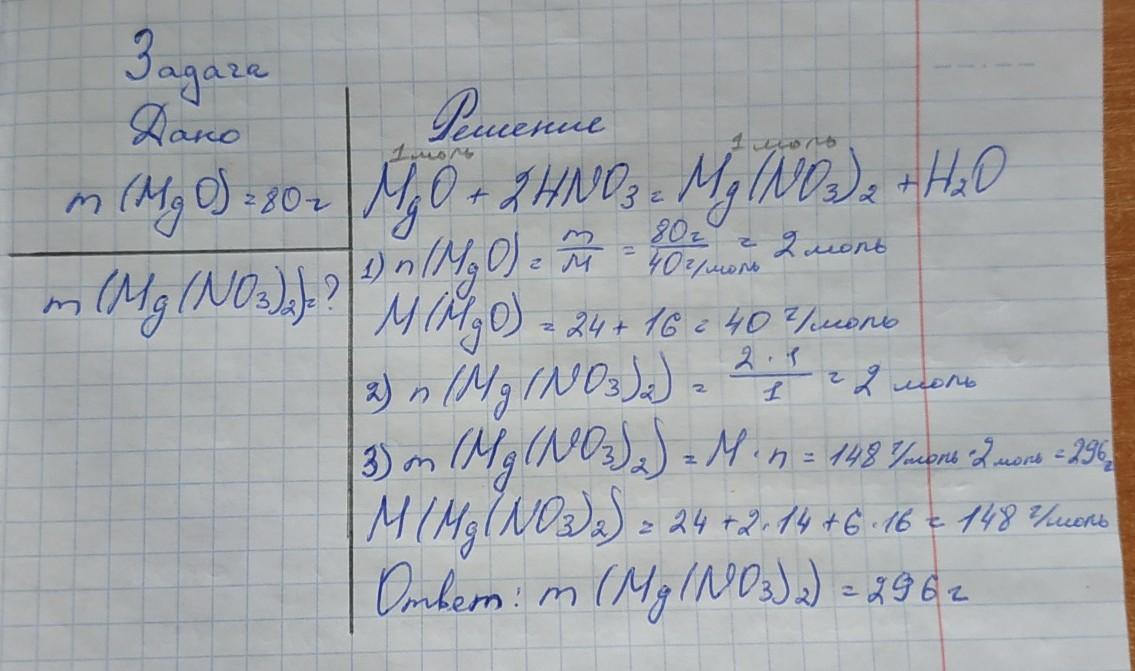 Задача
Дано
m (MgO) = 80 г
m (Mg(NO₃)₂) = ?
Решение
1 моль 1 моль
MgO + 2HNO₃ = Mg(NO₃)₂ + H₂O
1) n (MgO) = m/M = 80 г/40 г/моль = 2 моль
M (MgO) = 24 + 16 = 40 г/моль
2) n (Mg(NO₃)₂) = 2 · 1/1 = 2 моль
3) m (Mg(NO₃)₂) = M · n = 148 г/моль · 2 моль = 296 г
M (Mg(NO₃)₂) = 24 + 2 · 14 + 6 · 16 = 148 г/моль
Ответ: m (Mg(NO₃)₂) = 296 г